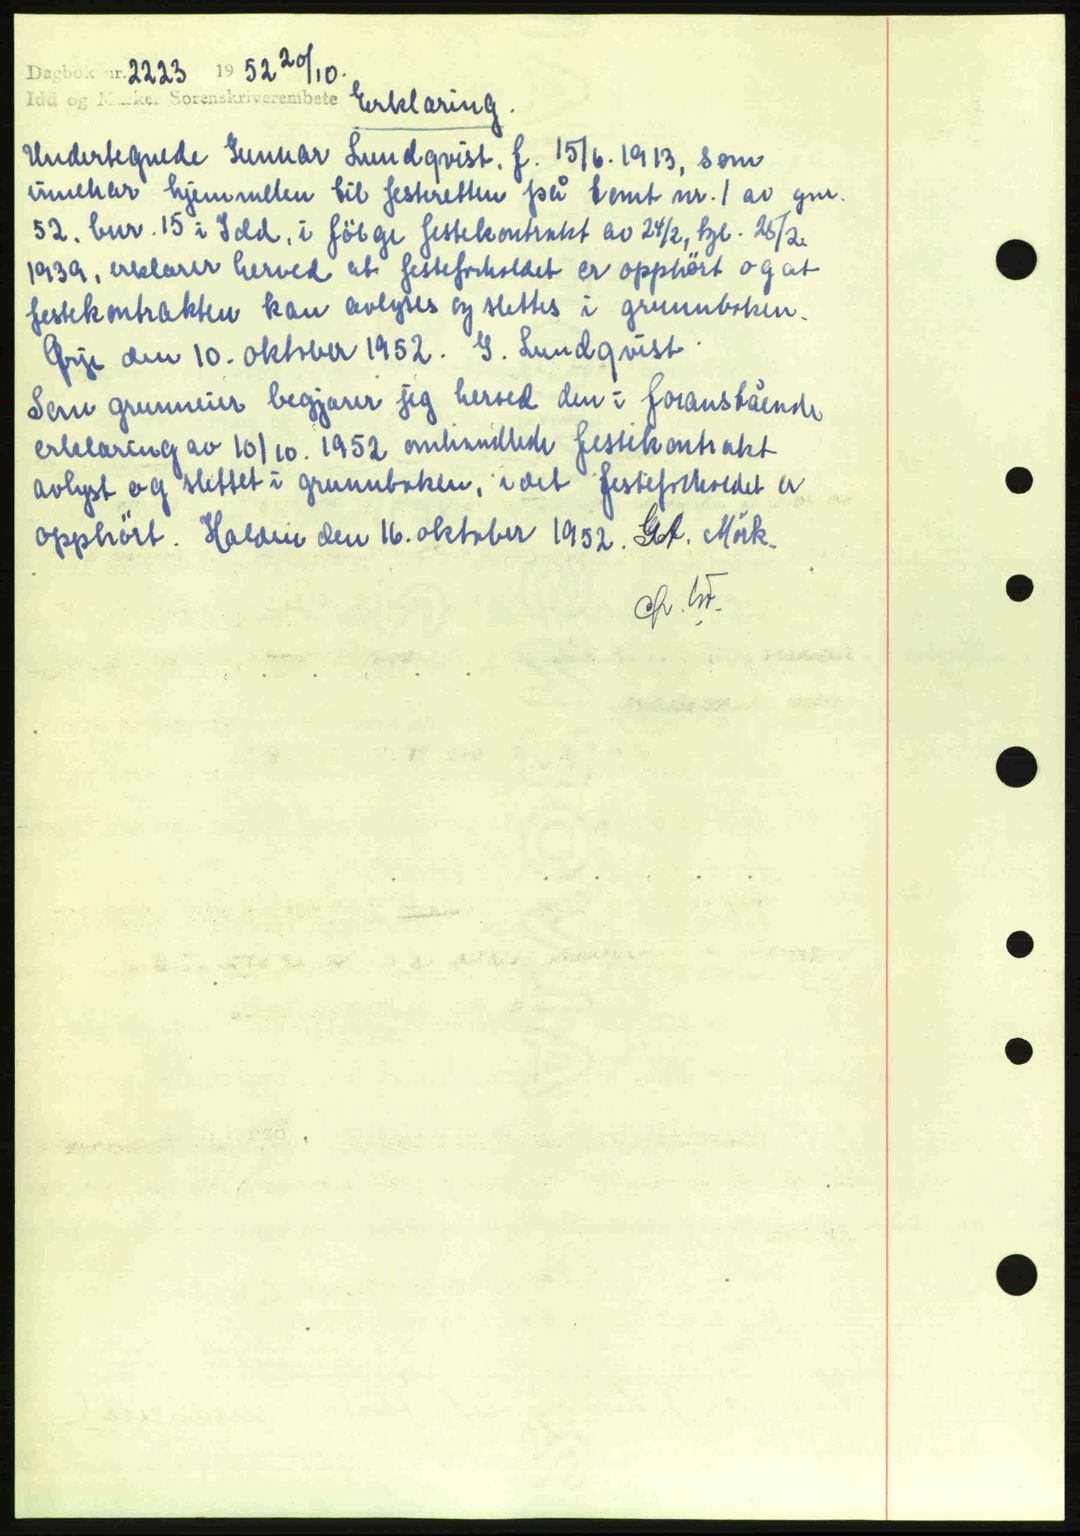 Dagbok nr. 2223 1952 20/10.
Idd og Marker Sorenskriverembete Erklæring.
Undertegnede Gunnar Lundqvist, f. 15/6. 1913, som
innehar hjemmelen til festeretten på tomt nr. 1 av gnr.
52, bnr. 15 i Idd, i følge festekontrakt av 24/2, tgl. 25/2
1939, erklærer herved at festeforholdet er opphørt og at
festekontrakten kan avlyses og slettes i grunnboken.
Ørje den 10. oktober 1952. G. Lundqvist.
Som grunneier begjærer jeg herved den i foranstående
erklæring av 10/10. 1952 omhandlede festekontrakt
avlyst og slettet i grunnboken, idet festeforholdet er
opphørt. Halden den 16. oktober 1952. Mørk.